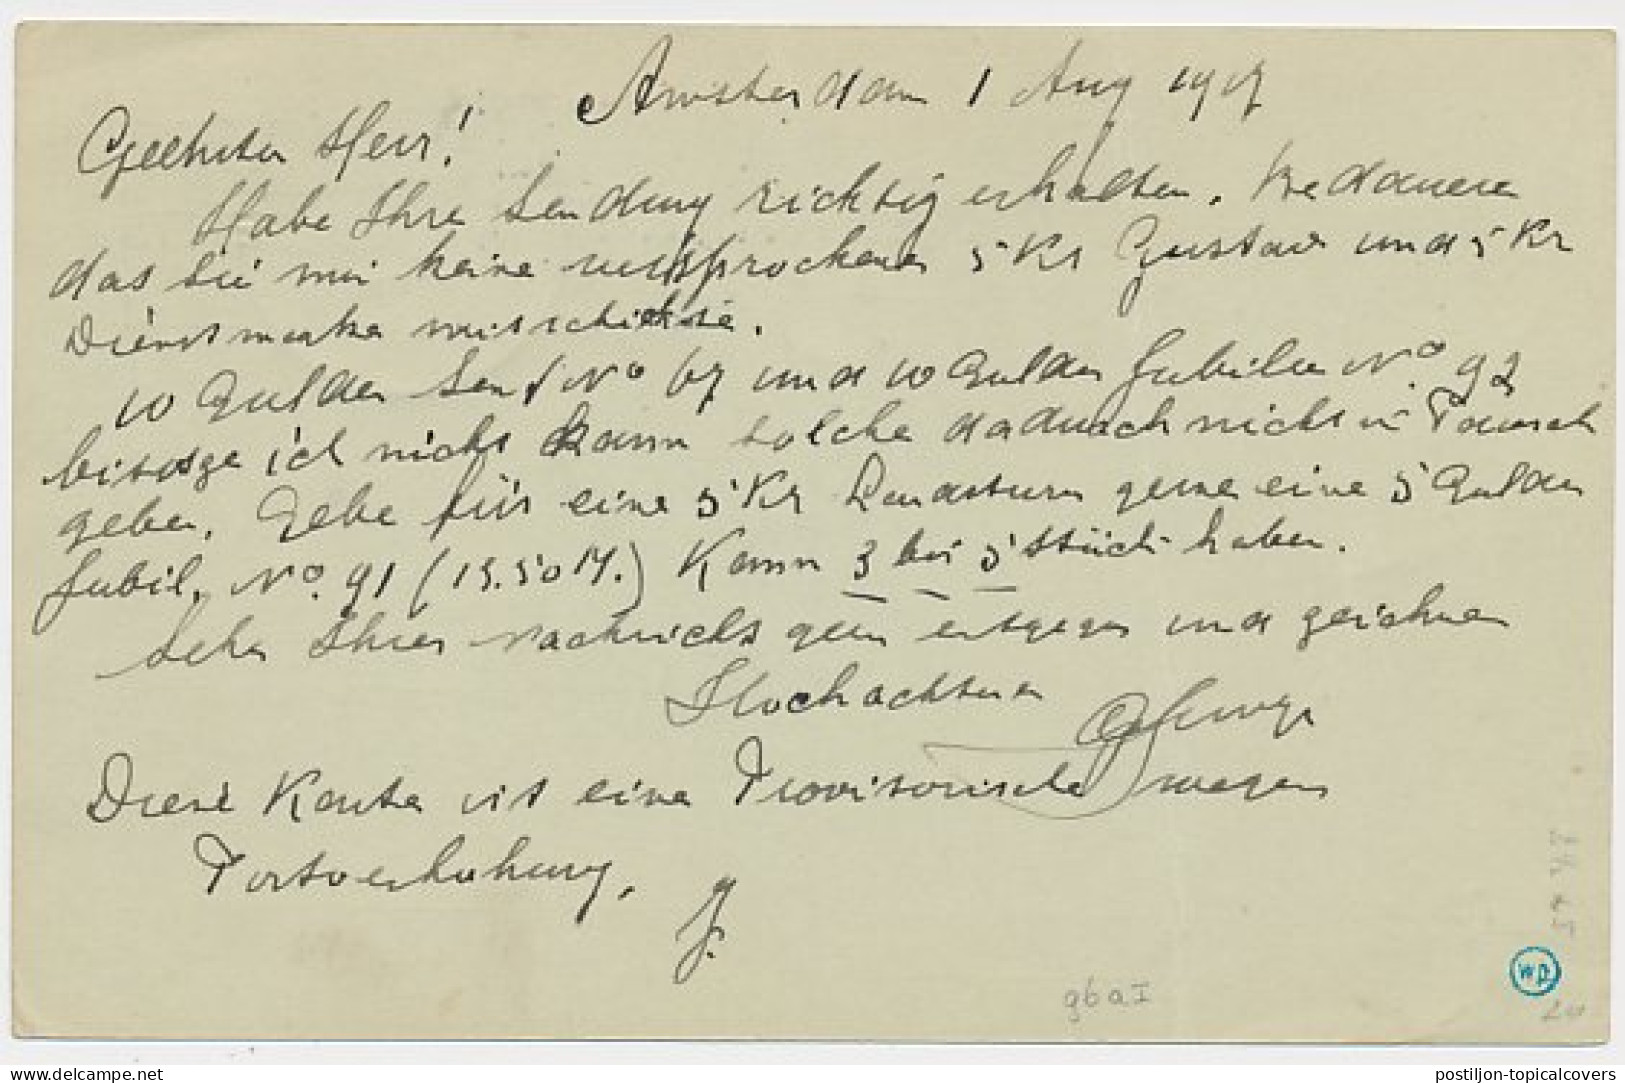 Amsterdam 1 Aug 1917
Geehrter Herr!
Habe Ihre Sendung richtig erhalten. Bedauere
das Sie mir keine versprochenen 5 Kr Gustav und 5 Kr
Dienstmarke mitschickte.
10 Gulden Senf No 67 und 10 Gulden Jubileu No. 92
besorge ich nicht kann solche dadurch nicht in Tausch
geben. Gebe für eine 5 Kr Landsturm gerne eine 5 Gulden
Jubil. No. 91 (13.50 M.) Kann 3 bis 5 Stück haben.
Sehe Ihrer Nachricht gern entgegen und zeichnen
Hochachtend
Diese Karte ist eine Provisorische wegen
Portoerhohung.
J.
g6 a I
wp
postiljon-topicalcovers
Delcampe.net